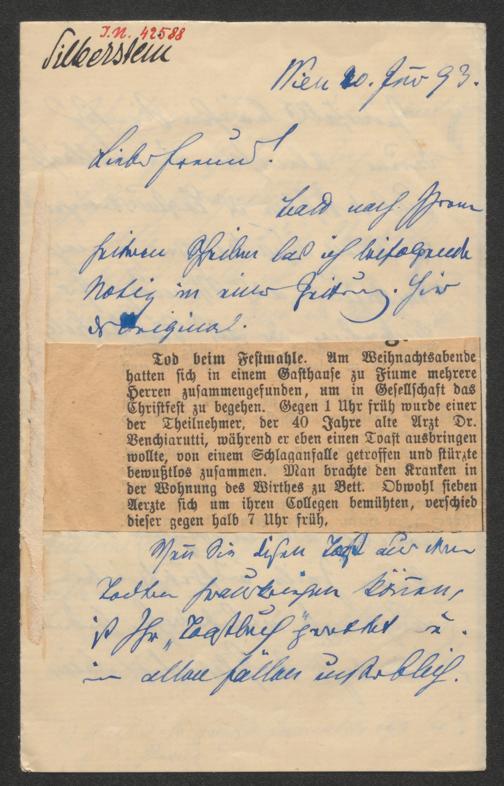 I.N. 42588
Silberstein
Wien 20. Jän 93.
Lieber Freund!
bald nach Ihrem
Schreiben las ich beifolgende
Notiz in einer Zeitung. Hier
das Original.
Tod beim Festmahle. Am Weihnachtsabende
hatten sich in einem Gasthause zu Fiume mehrere
Herren zusammengefunden, um in Gesellschaft das
Christfest zu begehen. Gegen 1 Uhr früh wurde einer
der Theilnehmer, der 40 Jahre alte Arzt Dr.
Venchiarutti, während er eben einen Toast ausbringen
wollte, von einem Schlaganfalle getroffen und stürzte
bewußtlos zusammen. Man brachte den Kranken in
der Wohnung des Wirthes zu Bett. Obwohl sieben
Aerzte sich um ihren Collegen bemühten, verschied
dieser gegen halb 7 Uhr früh.
Wenn Sie diesen Toast aus dem
Todten herausbringen können,
ist Ihr „Toastbuch" gerettet u.
in allen Fällen unsterblich.